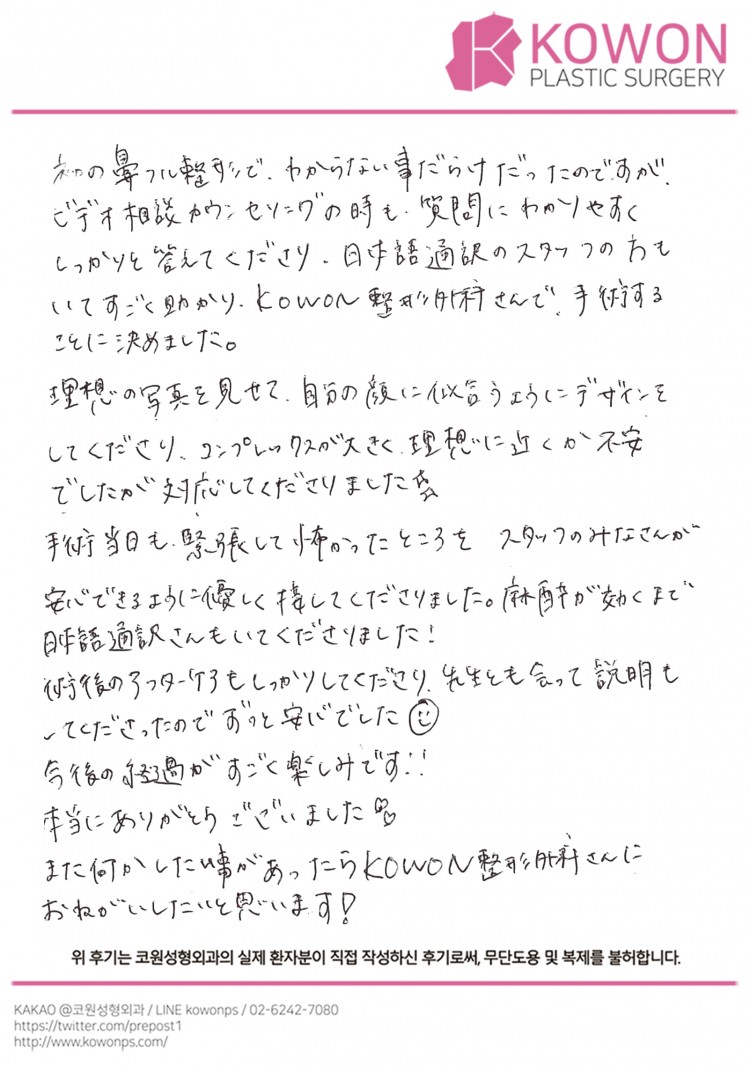 KOWON
PLASTIC SURGERY
初の鼻フル整形で、わからない事だらけだったのですが、
ビデオ相談カウンセリングの時も、質問にわかりやすく
しっかりと答えてくださり、日本語通訳のスタッフの方も
いてすごく助かり、KOWON整形外科さんで、手術する
ことに決めました。
理想の写真を見せて、自分の顔に似合うようにデザインを
してくださり、コンプレックスが大きく、理想に近くか不安
でしたが対応してくださりました
手術当日も、緊張して怖かったところを スタッフのみなさんが
安心できるように優しく接してくださりました。麻酔が効くまで
日本語通訳さんもいてくださりました!
術後のアフターケアもしっかりしてくださり、先生とも会って説明も
してくださったのでずっと安心でした
今後の経過がすごく楽しみです!!
本当にありがとうございました
また何かしたい事があったらKOWON整形外科さんに
おねがいしたいと思います!
위 후기는 코원성형외과의 실제 환자분이 직접 작성하신 후기로써, 무단도용 및 복제를 불허합니다.
KAKAO @코원성형외과 / LINE kowonps / 02-6242-7080
https://twitter.com/prepost1
http://www.kowonps.com/